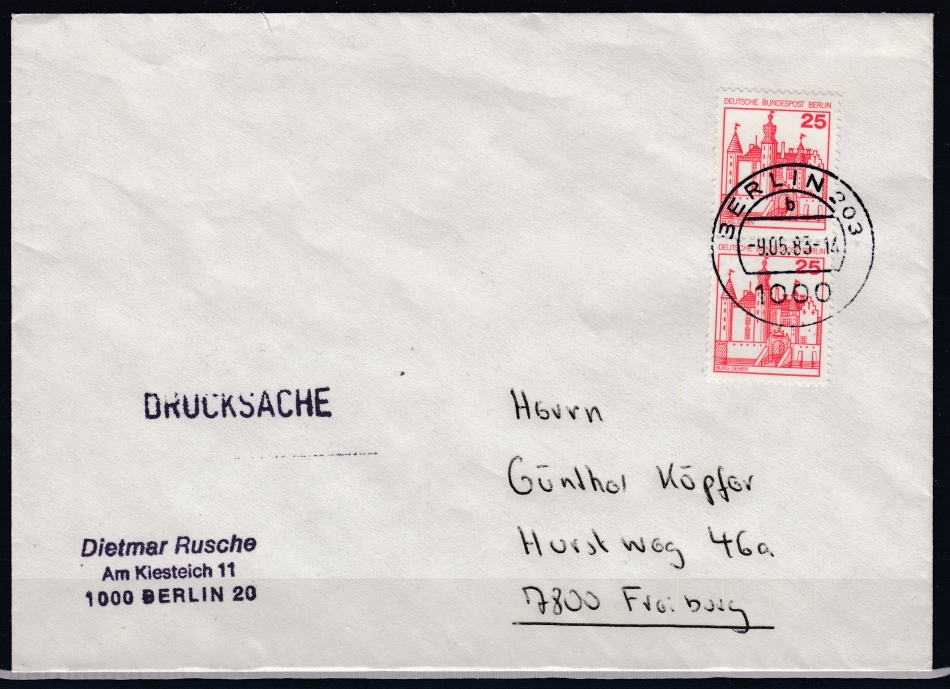 DEUTSCHE BUNDESPOST BERLIN
25
BERLIN 203
b
-9.05.83-14
1000
25
BURG GEMEN
DRUCKSACHE
Herrn
Günther Köpfer
Hurstweg 46a
7800 Freiburg
Dietmar Rusche
Am Kiesteich 11
1000 BERLIN 20